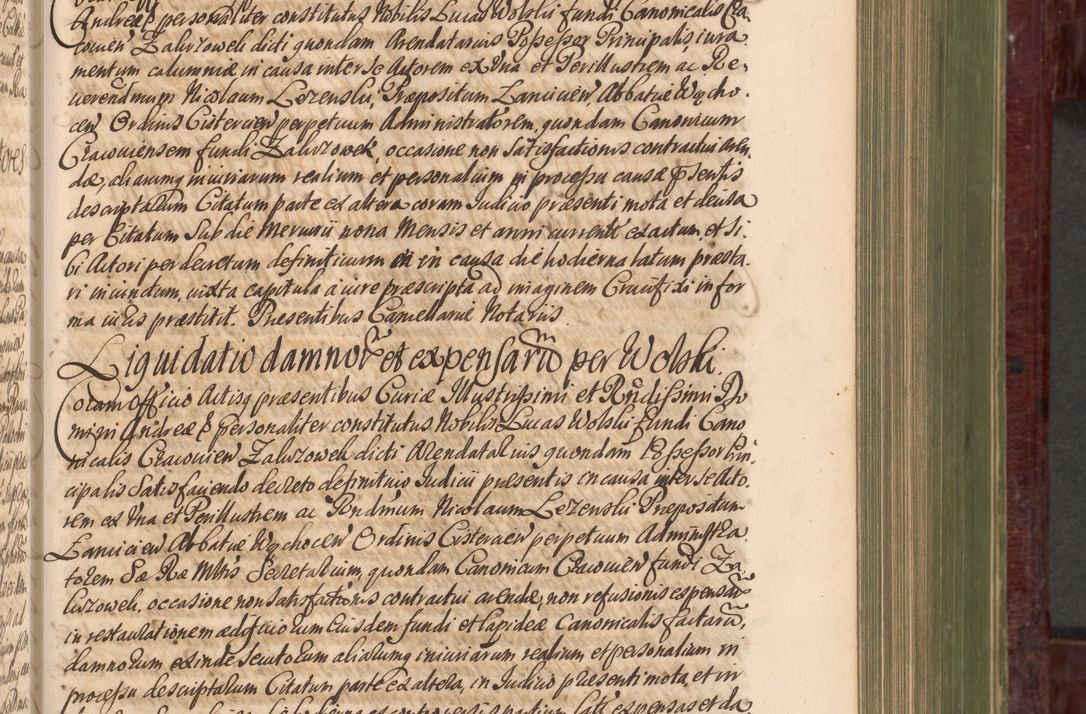 Andreæ personaliter constitutus Nobilis Lucas Wolski fundi Canonicalis Cra
covien Zakrzowek dicti quondam Arendatarius Possessor Principalis, iura
mentum calumniæ in causa inter se Actorem ex Una et Perillustrem ac Re
verendmum Nicolaum Lezenski, Præpositum Lancicien Abbatiæ Wącho
cen Ordinis Cistercien perpetuum Administratorem, quondam Canonicum
Cracoviensem fundi Zakrzowek, occasione non Satisfactionis contractui Aren
dæ, aliarumq iniuriarum realium et personalium in processu causæ Psentis
descriptarum Citatum parte ex altera coram Iudicio præsenti mota et decisa
per Citatum Sub die Mercurii nona Mensis et anni currentt exactum, et Si
bi Actori per decretum definitivum in causa die hodierna latum præsta
ri iniunctum, iuxta capitula a iure præscripta ad imaginem Crucifixi in for
ma iuris præstitit. Præsentibus Cancellariæ Notariis.
Liquidatio damnor et expensarum per Wolski.
Coram officio Actisq præsentibus Curiæ Illustrissimi et Rndissimi Do
mini Andreæ personaliter constitutus Nobilis Lucas Wolski fundi Cano
nicalis Cracovien Zakrzowek dicti Arendatarius quondam Possessor Prin
cipalis Satisfaciendo decreto definitivo Iudicii præsentis in causa inter se Acto
rem ex Una et Perillustrem ac Rendmum Nicolaum Lezenski Præpositum
Lancicien Abbatiæ Wąchocen Ordinis Cistercien perpetuum Administra
torem Sæ Ræ Mttis Secretarium, quondam Canonicum Cracovien fundi Za
krzowek, occasione non satisfactionis contractui arendæ, non refusionis expensarum
in restaurationem ædificiorum Eiusdem fundi et lapideæ Canonicalis factarum,
damnorum exinde secutorum aliarumq iniuriarum realium et personalium in
processu descriptarum Citatum parte ex altera, in Iudicio præsenti mota, et in